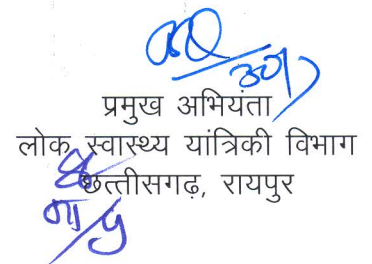 प्रमुख अभियंता
लोक स्वास्थ्य यांत्रिकी विभाग
छत्तीसगढ़, रायपुर